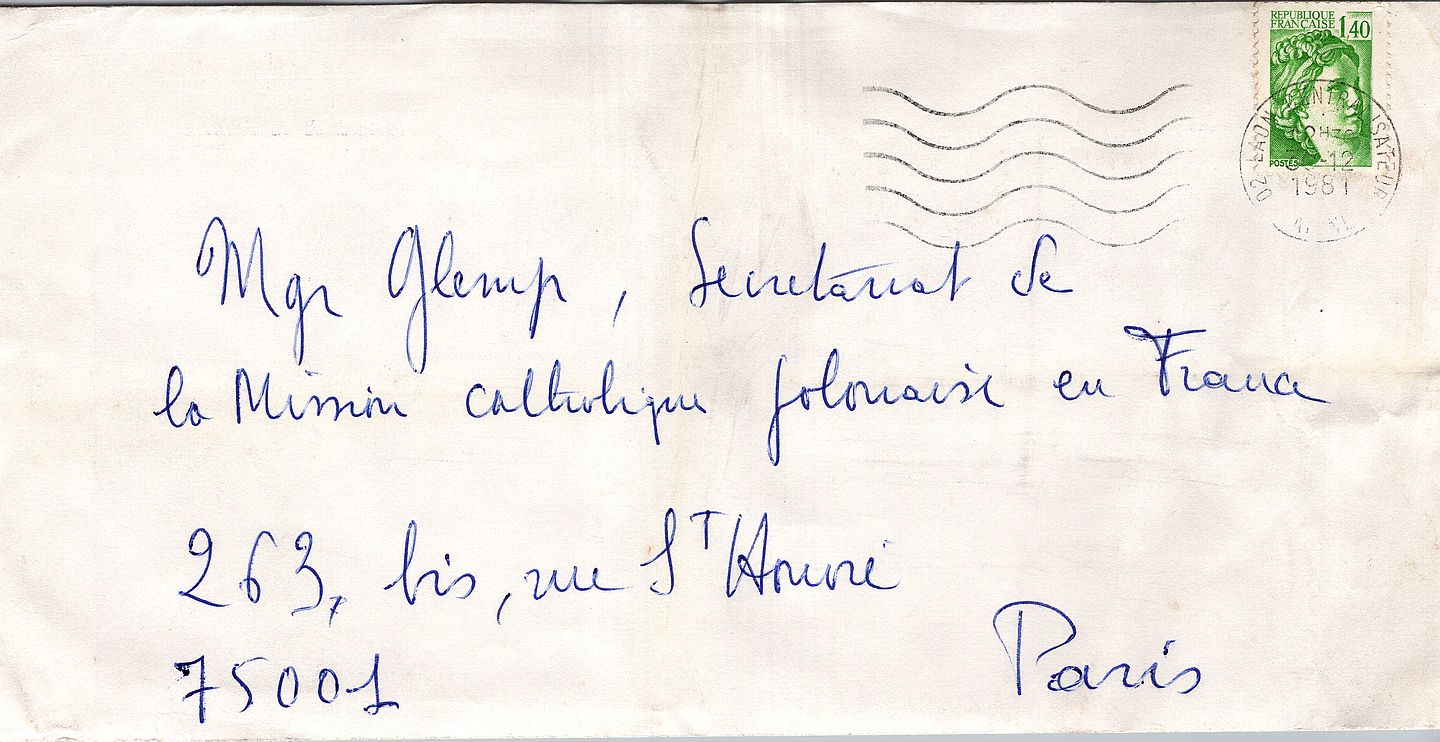 REPUBLIQUE
FRANÇAISE 1,40
POSTES
02 LAON CENTRALISATEUR
-12
1981
Mgr Glemp, Secretariat de
la Mission catholique polonaise en France
263, bis, rue St Honoré
75001
Paris